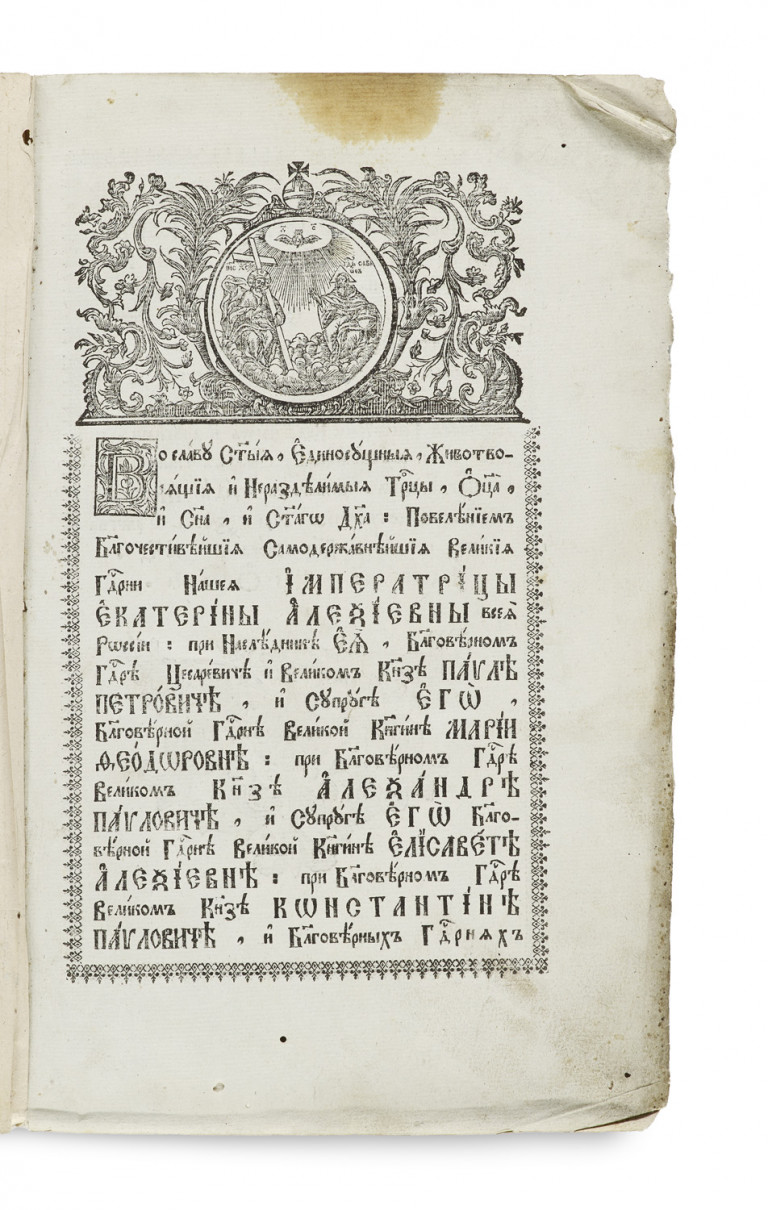 ІИС ХС
Гдь Сава
Во сла́вꙋ Ст҃ы́ѧ, Є҆диносꙋ́щныѧ, Животво-
рѧ́щїѧ и҆ Нераздѣли́мыѧ Трⷪ҇цы, Ѻ҆ц҃а̀,
и҆ Сн҃а, и҆ Ст҃а́гѡ Дх҃а : Повелѣ́нїемъ
Бл҃гочести́вѣйшїѧ Самодержа́внѣйшїѧ вели́кїѧ
Гдⷭ҇рни на́шеѧ І҆МПЕРАТРІ́ЦЫ
Є҆КАТЕРІ́НЫ А҆ЛЕѮІ́ЕВНЫ всеѧ̀
Рѡссі́и : при Наслѣ́дникѣ Є҆Ѧ̀, Бл҃говѣ́рномъ
Гдⷭ҇рѣ Цесаре́вичѣ и҆ Вели́комъ Кн҃зѣ ПА́ѴЛѢ
ПЕТРО́ВИЧѢ, и҆ Сꙋпрꙋ́гѣ Є҆ГѠ̀,
Бл҃говѣ́рной Гдⷭ҇рнѣ Вели́кой Кн҃ги́нѣ МАРІ́И
Ѳ҆ЕО́ДѠРОВНѢ : при Бл҃говѣ́рномъ Гдⷭ҇рѣ
Вели́комъ Кн҃зѣ А҆ЛЕѮА́НДРѢ
ПА́ѴЛОВИЧѢ, и҆ Сꙋпрꙋ́гѣ Є҆ГѠ̀ Бл҃го-
вѣ́рной Гдⷭ҇рнѣ Вели́кой Кн҃ги́нѣ Є҆ЛІСАВЕ́ТѢ
А҆ЛЕѮІ́ЕВНѢ : при Бл҃говѣ́рномъ Гдⷭ҇рѣ
Вели́комъ Кн҃зѣ КѠНСТАНТІ́НѢ
ПА́ѴЛОВИЧѢ, и҆ Бл҃говѣ́рныхъ Гдⷭ҇рнѧхъ